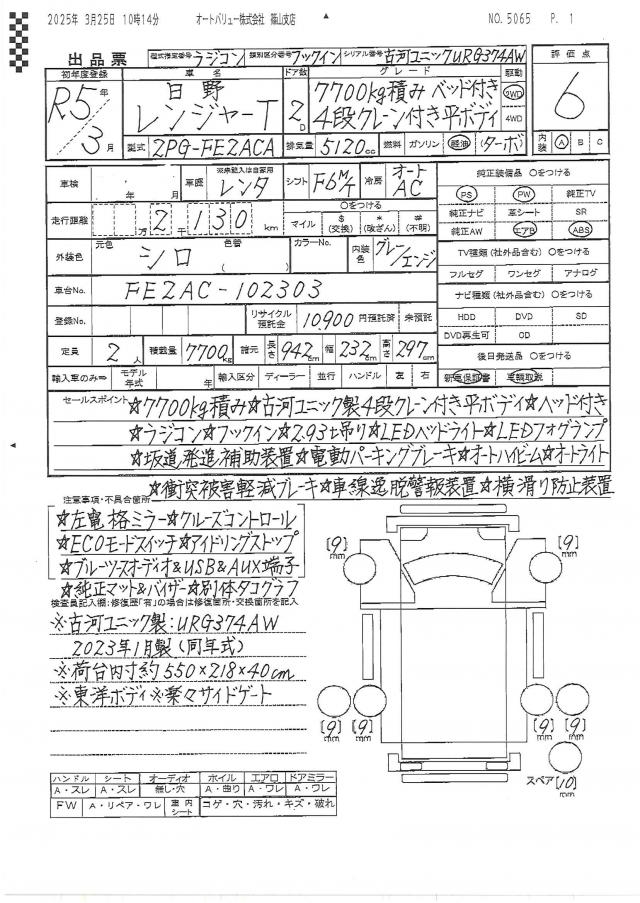 2025年 3月25日 10時14分 オートバリュー株式会社 篠山支店 NO. 5065 P. 1
出品票 型式指定番号 ラジコン 類別区分番号 フックイン シリアル番号 古河ユニックURG374AW
評価点
6
初年度登録 車名 ドア数 グレード 駆動
R5年 3月
日野 レンジャーT
2D
7700kg積み ベッド付き
4段クレーン付き平ボディ
2WD
4WD
型式 2PG-FE2ACA 排気量 5120cc 燃料 ガソリン 軽油 (ターボ) 内装 A B C
車検 年 月 車歴 ※未記入は自家用 レンタ シフト F6M/T 冷房 オートAC
走行距離 万 2千130 km ○をつける マイル $(交換) *(改ざん) #(不明)
外装色 元色 シロ 色替 ( ) カラーNo. 内装色 グレー/エンジ
車台No. FE2AC-102303
登録No. リサイクル預託金 10,900円預託済 未預託
定員 2人 積載量 7700kg 諸元 長さ 942cm 幅 232cm 高さ 297cm
輸入車のみ⇒ モデル年式 年 輸入区分 ディーラー 並行 ハンドル 左 右
純正装備品 ○をつける
PS PW 純正TV
純正ナビ 革シート SR
純正AW エアB ABS
TV種類(社外品含む) ○をつける
フルセグ ワンセグ アナログ
ナビ種類(社外品含む) ○をつける
HDD DVD SD
DVD再生可 CD
後日発送品 ○をつける
新車保証書 車輌取説
セールスポイント ☆7700kg積み☆古河ユニック製4段クレーン付き平ボディ☆ベッド付き
☆ラジコン☆フックイン☆2.93t吊り☆LEDヘッドライト☆LEDフォグランプ
☆坂道発進補助装置☆電動パーキングブレーキ☆オートハイビーム☆オートライト
☆衝突被害軽減ブレーキ☆車線逸脱警報装置☆横滑り防止装置
注意事項・不具合箇所
☆左電格ミラー☆クルーズコントロール
☆ECOモードスイッチ☆アイドリングストップ
☆ブルーツースオーディオ&USB&AUX端子
☆純正マット&バイザー☆別体タコグラフ
検査員記入欄:修復歴「有」の場合は修復箇所・交換箇所を記入
※古河ユニック製:URG374AW
2023年1月製(同年式)
※荷台内寸約550×218×40cm
※東洋ボディ※楽々サイドゲート
[9]mm [9]mm
[9]mm [9]mm [9]mm [9]mm
スペア[10]mm
ハンドル シート オーディオ ホイル エアロ ドアミラー
A・スレ A・スレ 無し・穴 A・曲り A・ワレ A・ワレ
FW A・リペア・ワレ 車内シート コゲ・穴・汚れ・キズ・破れ